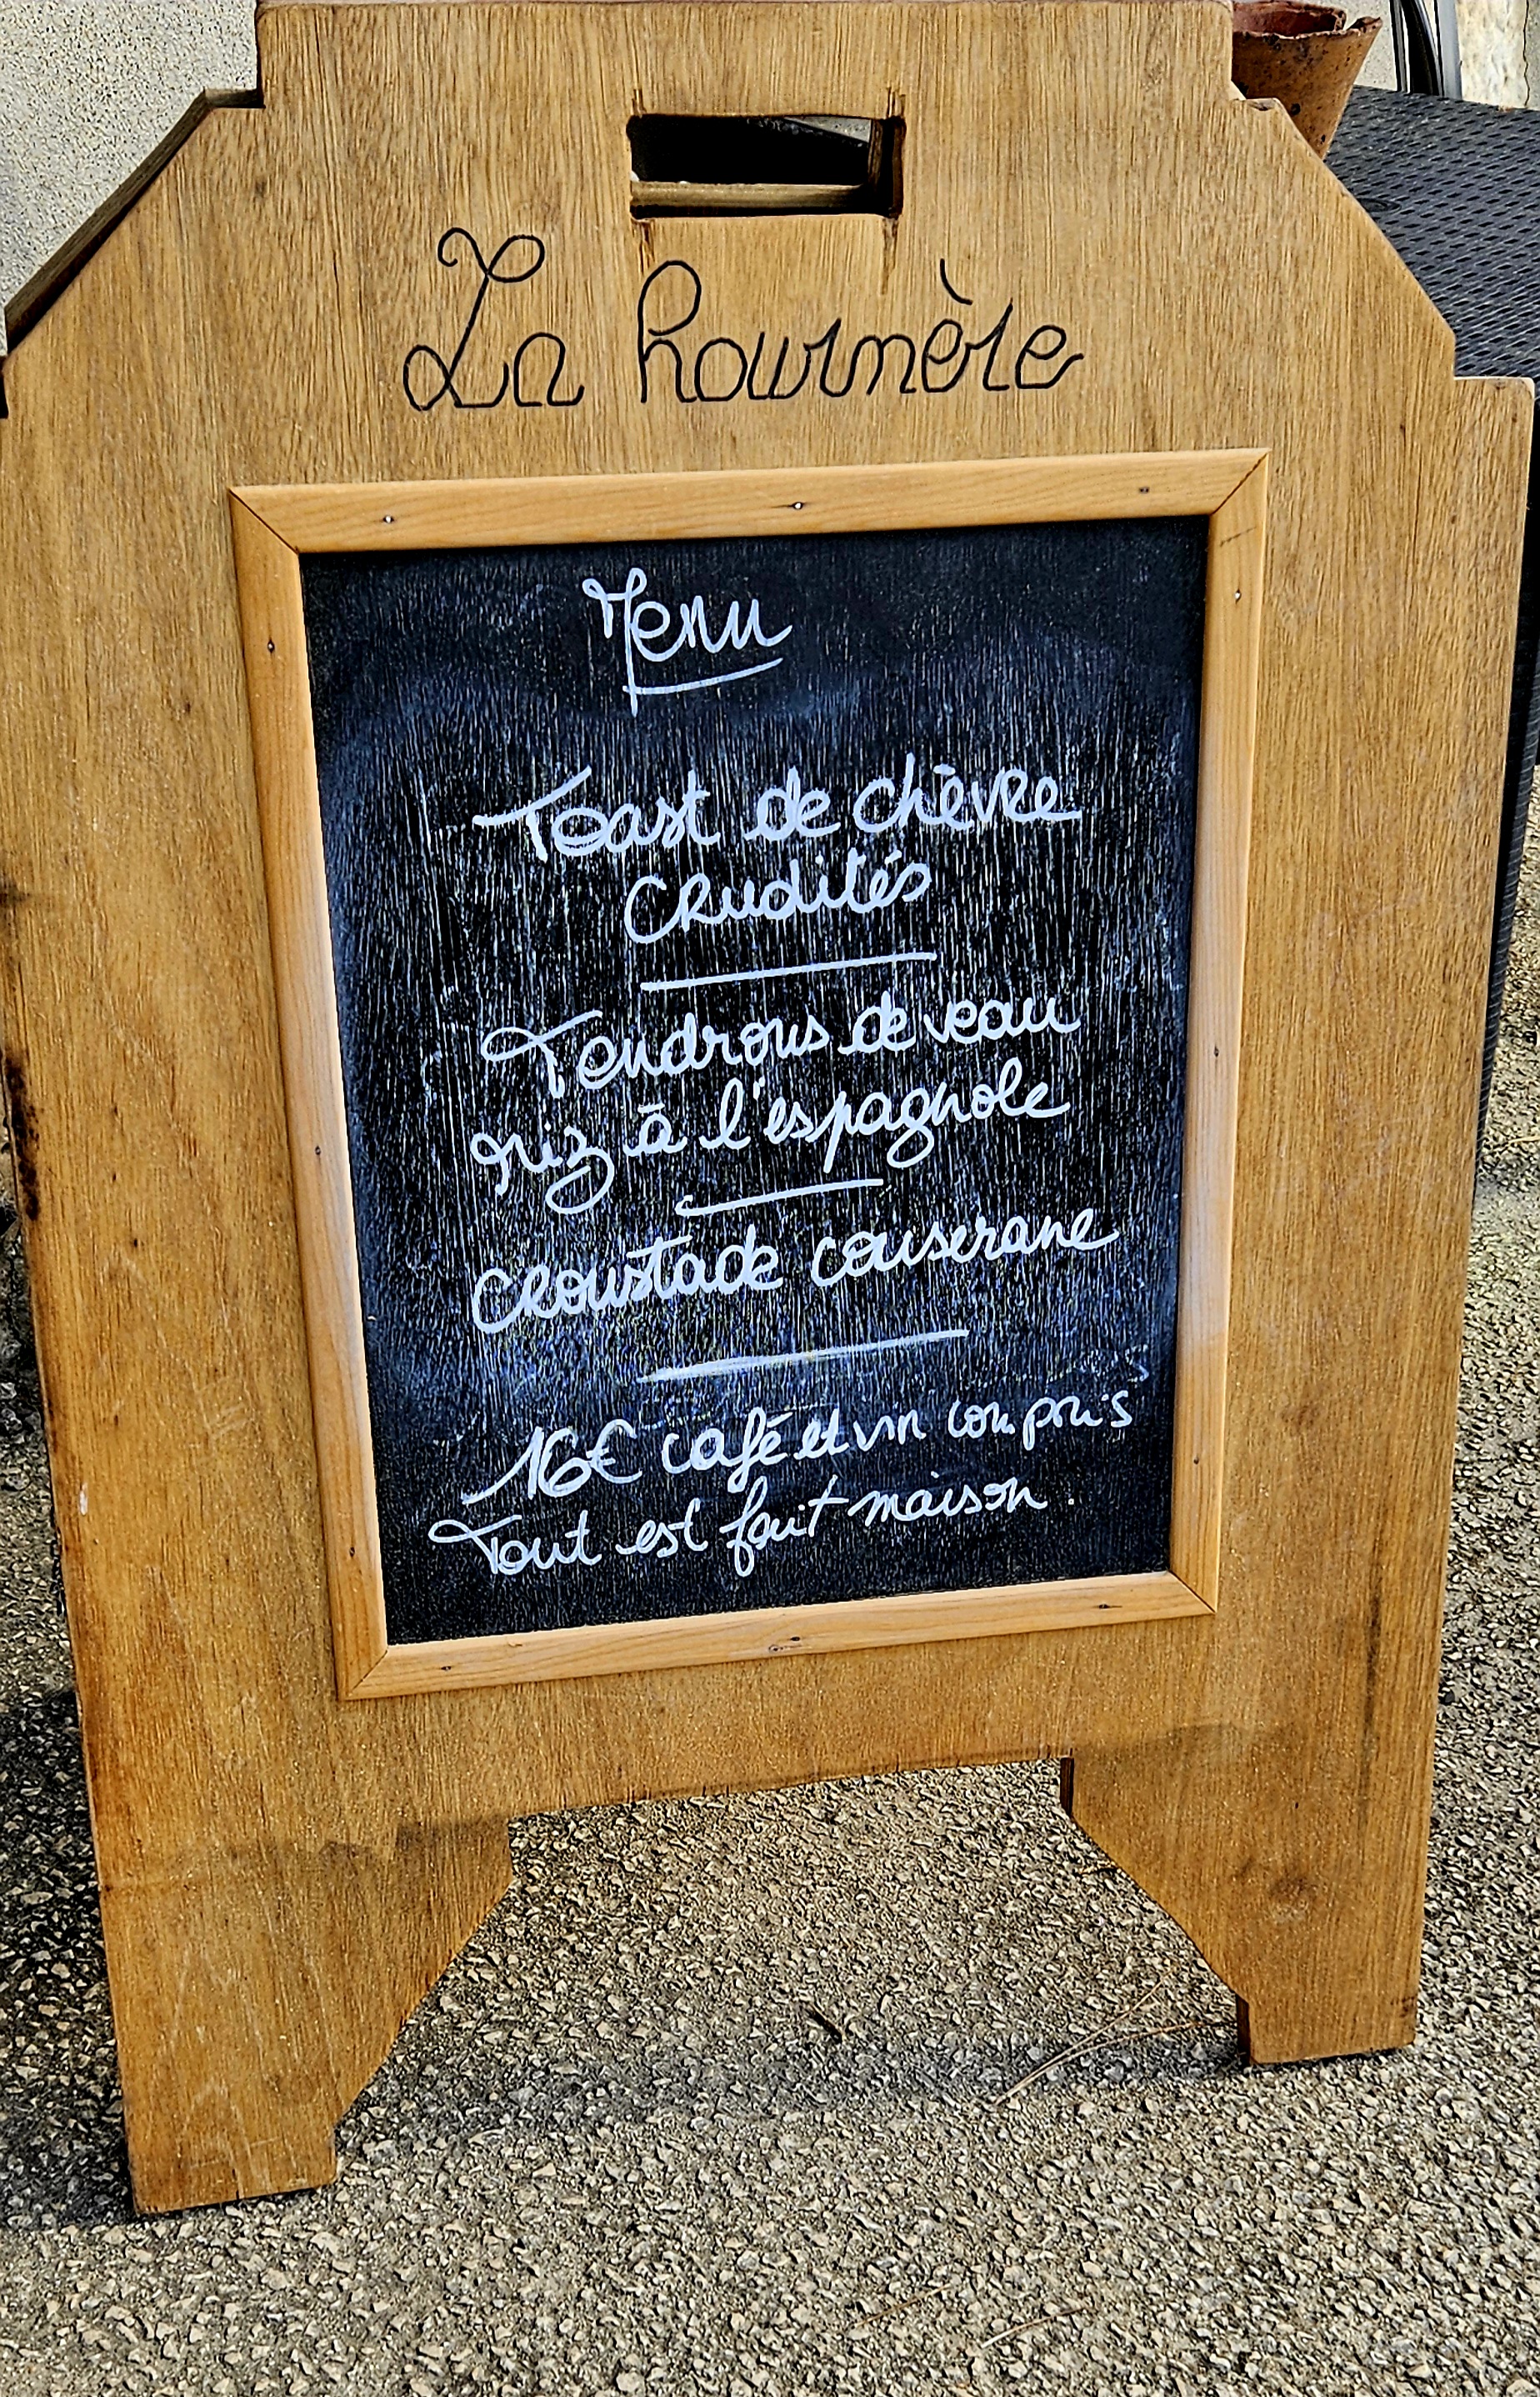 La hournère
Menu
Toast de chèvre
crudités
Tendrons de veau
riz à l'espagnole
croustade couserane
16€ café et vin compris
Tout est fait maison.